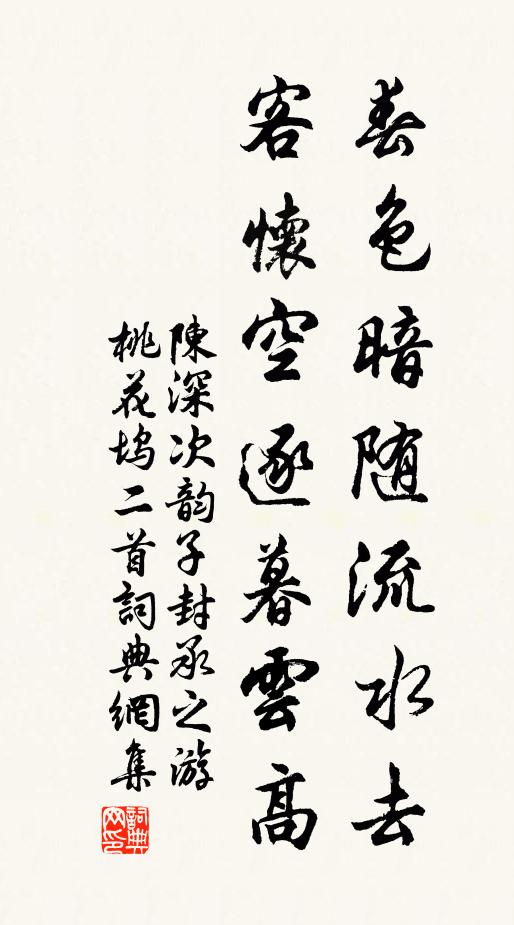 春色暗随流水去
客懷空逐暮雲高
陳深次韵子封承之游
桃花塢二首詞典網集
詞典
网印